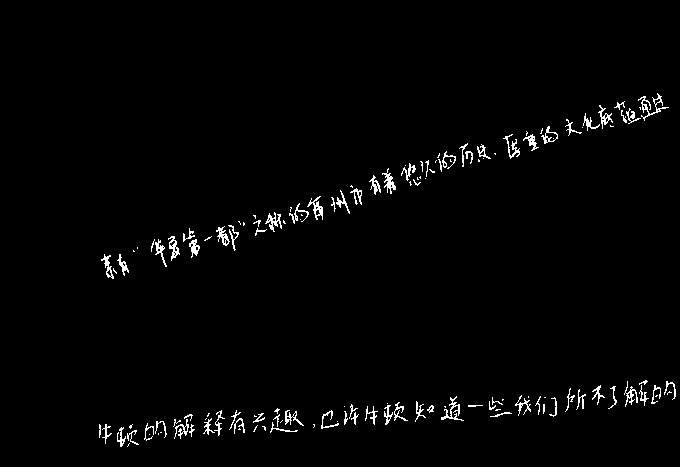 素有“华夏第一都”之称的禹州市有着悠久的历史、厚重的文化底蕴通过
牛顿的解释有兴趣,也许牛顿知道一些我们所不了解的